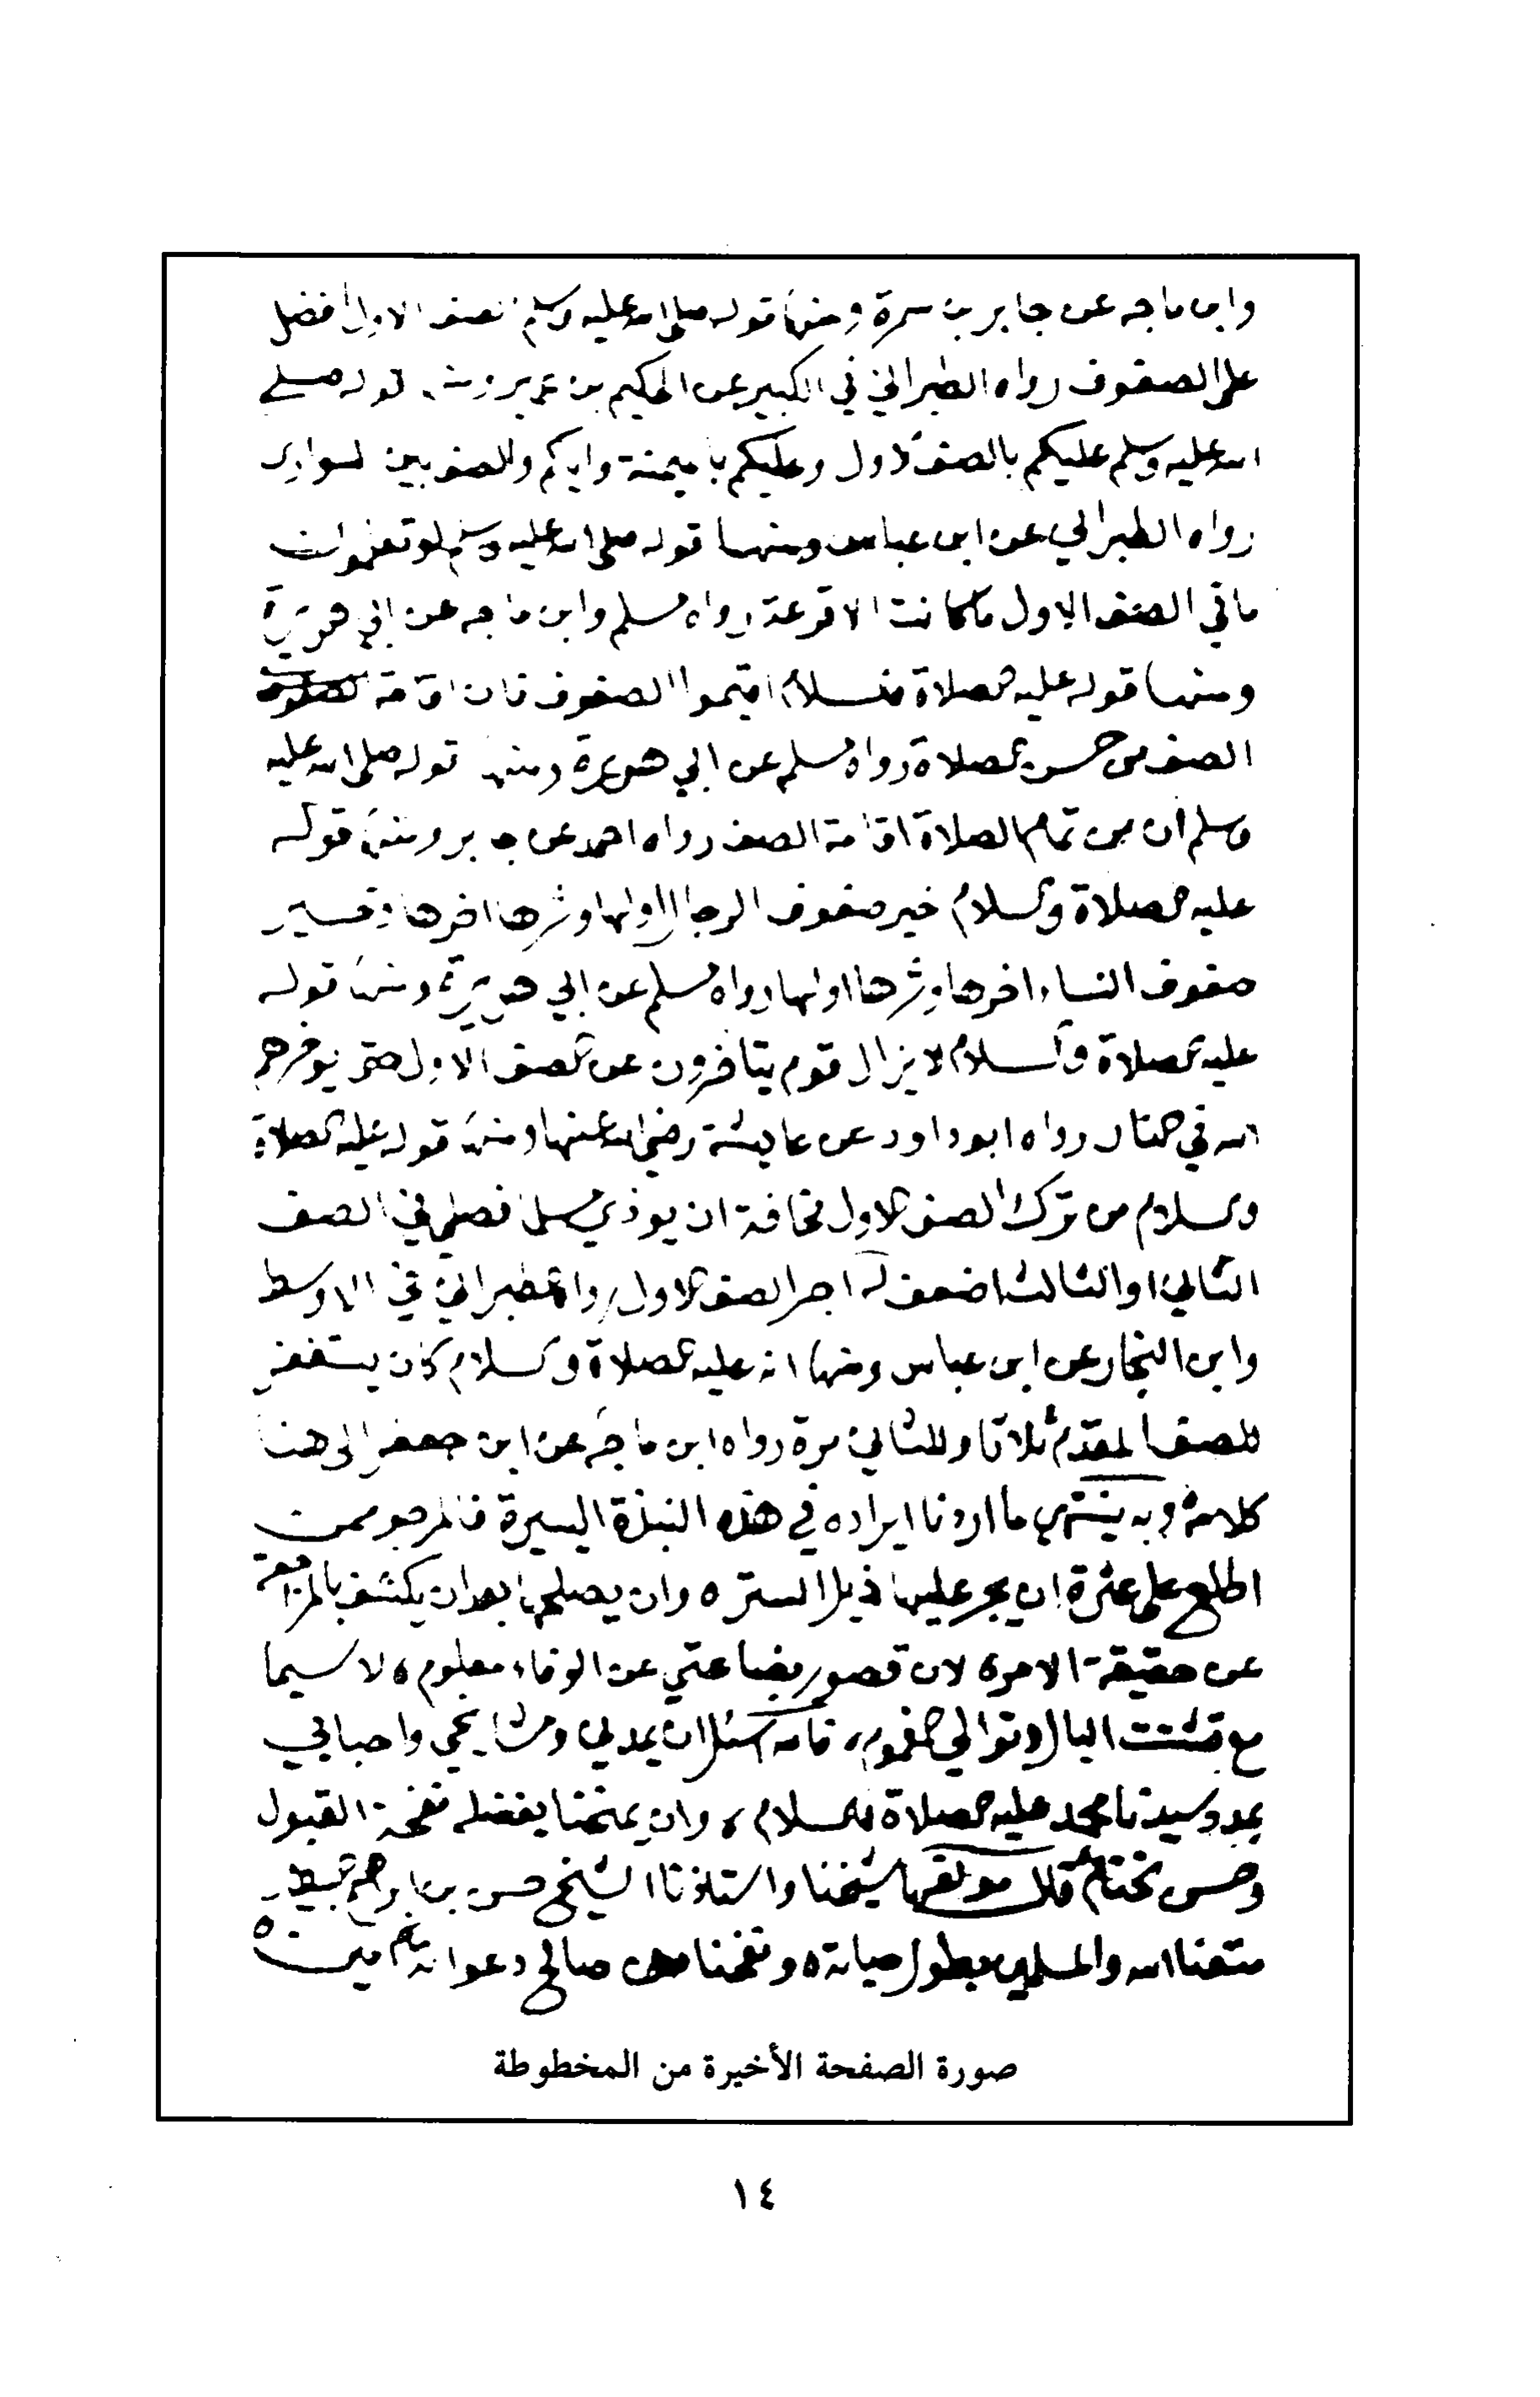 وابن ماجه عن جابر بن سمرة ومنها قوله صلى الله عليه وسلم الصف الاول افضل
على الصفوف رواه الطبراني في الكبير عن الحكيم بن عمير ومنها قوله صلى
الله عليه وسلم عليكم بالصف الاول وعليكم بالميمنة واياكم والصف بين السواري
رواه الطبراني عن ابن عباس ومنها قوله صلى الله عليه وسلم لو تعلمون
ما في الصف الاول ما كانت الا قرعة رواه مسلم وابن ماجه عن ابي هريرة
ومنها قوله عليه الصلاة والسلام اقيموا الصفوف فان اقامة
الصف من حسن الصلاة رواه مسلم عن ابي هريرة ومنها قوله صلى الله عليه
وسلم ان من تمام الصلاة اقامة الصف رواه احمد عن جابر ومنها قوله
عليه الصلاة والسلام خير صفوف الرجال اولها وشرها اخرها وخير
صفوف النساء اخرها وشرها اولها رواه مسلم عن ابي هريرة ومنها قوله
عليه الصلاة والسلام لا يزال قوم يتاخرون عن الصف الاول حتى يوخرهم
الله في النار رواه ابو داود عن عايشة رضي الله عنها ومنها قوله عليه الصلاة
والسلام من ترك الصف الاول مخافة ان يوذي مسلما فصلى في الصف
الثاني او الثالث اضعف له اجر الصف الاول رواه الطبراني في الاوسط
وابن النجار عن ابن عباس ومنها انه عليه الصلاة والسلام كان يستغفر
للصف المقدم ثلاثا وللثاني مرة رواه ابن ماجه عن ابن جعفر الى هنا
كلامه وبه ينتهي ما اردنا ايراده في هذه النبذة اليسيرة فالمرجو ممن
اطلع على عثرة ان يجر عليها ذيل الستر ه وان يصلحها بعد ان يكشف بالمراجعة
عن حقيقة الامر ه لان قصور بضاعتي عن الوفاء معلوم ه لا سيما
مع تشتت البال وتوالي الهموم، فالله اسئل ان يمدني ومشايخي واحبابي
بمدد سيدنا محمد عليه الصلاة والسلام، وان يمنحنا بفضله نفحة القبول
وحسن الختام قال مولفها شيخنا واستاذنا الشيخ حسن بن ابراهيم البيطار
متعنا الله والمسلمين بطول حياته ه ونفحنا من صالح دعواته امين ه
صورة الصفحة الأخيرة من المخطوطة
١٤